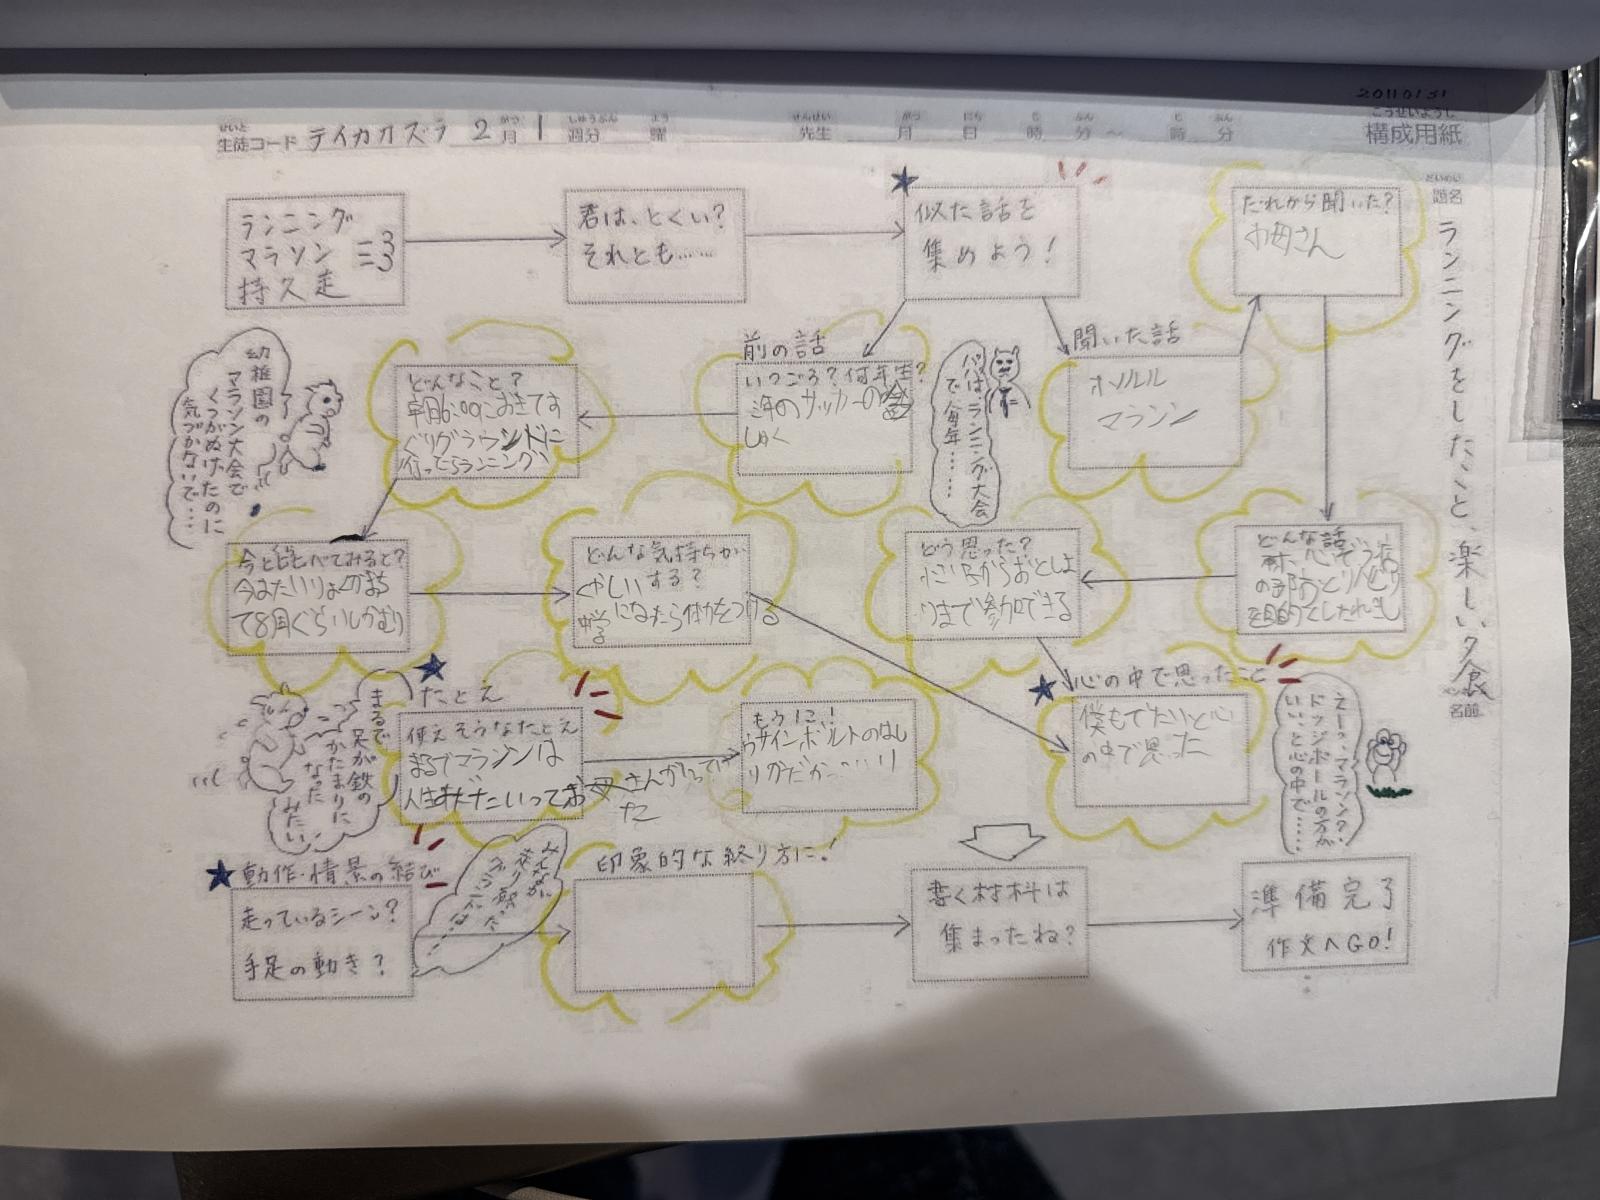 20110131
せいと
生徒コード テイカカズラ 2月 1週分 曜 先生 月 日 時 分~ 時 分
こうせいようし
構成用紙
だいめい
題名
ランニングをしたこと、楽しい夕食
名前
ランニング
マラソン
持久走
君は、とくい?
それとも……
似た話を
集めよう!
だれから聞いた?
お母さん
聞いた話
ホノルル
マラソン
前の話
いつごろ?何年生?
3年のサッカーの合
しゅく
パパは、ランニング大会
で毎年……
どんなこと?
早朝6:00におきてす
ぐグラウンドに
行ってランニング
幼稚園の
マラソン大会で
くつがぬげたのに
気づかないで……
今と比べてみると?
て8月ぐらい
どんな気持ちが
する?
くやしい
中学になたら体力をつける
どう思った?
まで参加できる
どんな話
心ぞう病
を目的とした
たとえ
使えそうなたとえ
まるでマラソンは
お母さんがいって
た
まるで
足が鉄の
かたまりに
なった
みたい
もうに!
ウサインボルトのはし
心の中で思ったこと
僕もでたいと心
の中で思った
えーっ、マラソン?
ドッジボールの方が
いい、と心の中で……
動作・情景の結び
走っているシーン?
手足の動き?
印象的な終り方に!
書く材料は
集まったね?
準備完了
作文へGO!